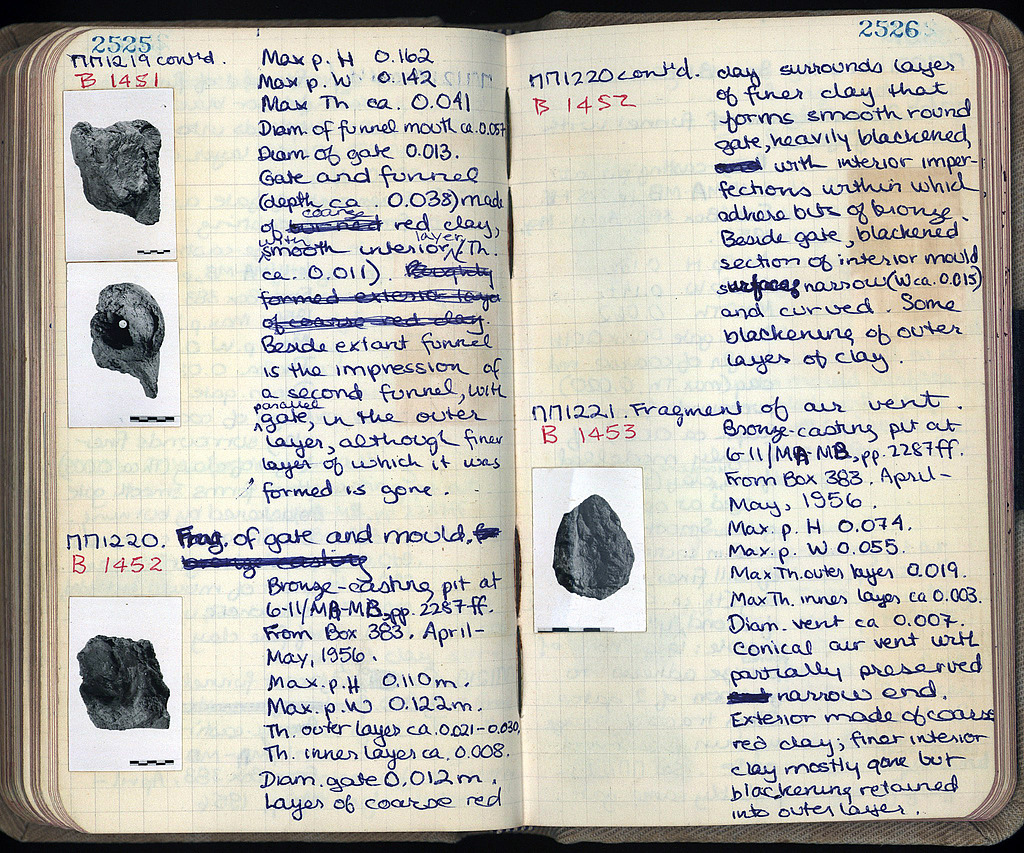 2525
ΠΠ1219 cont'd.
B 1451
Max p. H 0.162
Max p. W 0.142
Max Th ca. 0.041
Diam. of funnel mouth ca. 0.057
Diam of gate 0.013.
Gate and funnel
(depth ca 0.038) made
of coarse red clay,
with smooth interior layer (Th.
ca 0.011). Roughly
formed exterior layer
of coarse red clay.
Beside extant funnel
is the impression of
a second funnel, with
parallel
gate, in the outer
layer, although finer
layer of which it was
formed is gone.
ΠΠ1220. Frag. of gate and mould.
B 1452 bronze casting
Bronze-casting pit at
6-11/MA-MB, pp. 2287ff.
From Box 383. April-
May, 1956.
Max. p. H 0.110 m.
Max. p. W 0.122 m.
Th. outer layer ca. 0.021-0.030.
Th. inner layer ca. 0.008.
Diam. gate 0.012 m.
Layer of coarse red
2526
ΠΠ1220 cont'd.
B 1452
clay surrounds layer
of finer clay that
forms smooth round
gate, heavily blackened,
with interior imper-
fections within which
adhere bits of bronze.
Beside gate, blackened
section of interior mould
surface narrow (W ca. 0.015)
and curved. Some
blackening of outer
layer of clay.
ΠΠ1221. Fragment of air vent.
B 1453
Bronze-casting pit at
6-11/MA-MB, pp. 2287ff.
From Box 383. April-
May, 1956.
Max. p. H 0.074.
Max. p. W 0.055.
Max Th. outer layer 0.019.
Max Th. inner layer ca 0.003.
Diam. vent ca 0.007.
Conical air vent with
partially preserved
narrow end.
Exterior made of coarse
red clay; finer interior
clay mostly gone but
blackening retained
into outer layer.